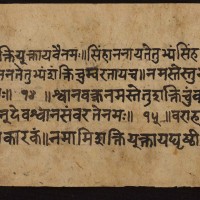 क्तियुक्तायवैनमः॥सिंहाननायतेतुभ्यंसिंह
ननतेतुभ्यंशक्तिचुम्बरतायच॥नमस्तेस्तु
ः॥१४॥श्वानवक्त्रनमस्तेतुशक्तिचुं
नूदेवश्वानसंवरतेनमः॥१५॥वराह
कारकं॥नमामिशक्तियुक्ताय